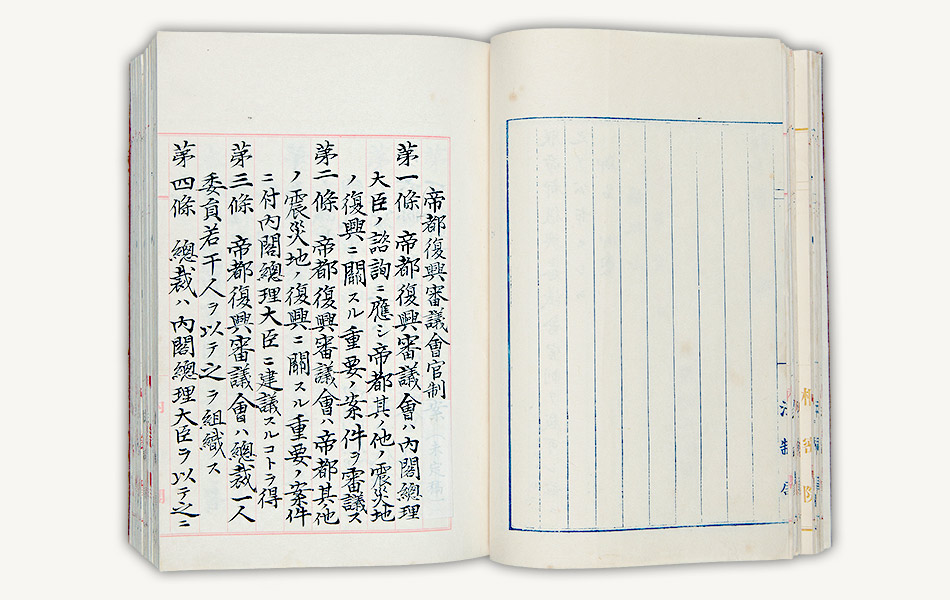 帝都復興審議會官制
第一條 帝都復興審議會ハ內閣總理
大臣ノ諮詢ニ應シ帝都其ノ他ノ震災地
ノ復興ニ關スル重要ノ案件ヲ審議ス
第二條 帝都復興審議會ハ帝都其他
ノ震災地ノ復興ニ關スル重要ノ案件
ニ付內閣總理大臣ニ建議スルコトヲ得
第三條 帝都復興審議會ハ總裁一人
委員若干人ヲ以テ之ヲ組織ス
第四條 總裁ハ內閣總理大臣ヲ以テ之ニ